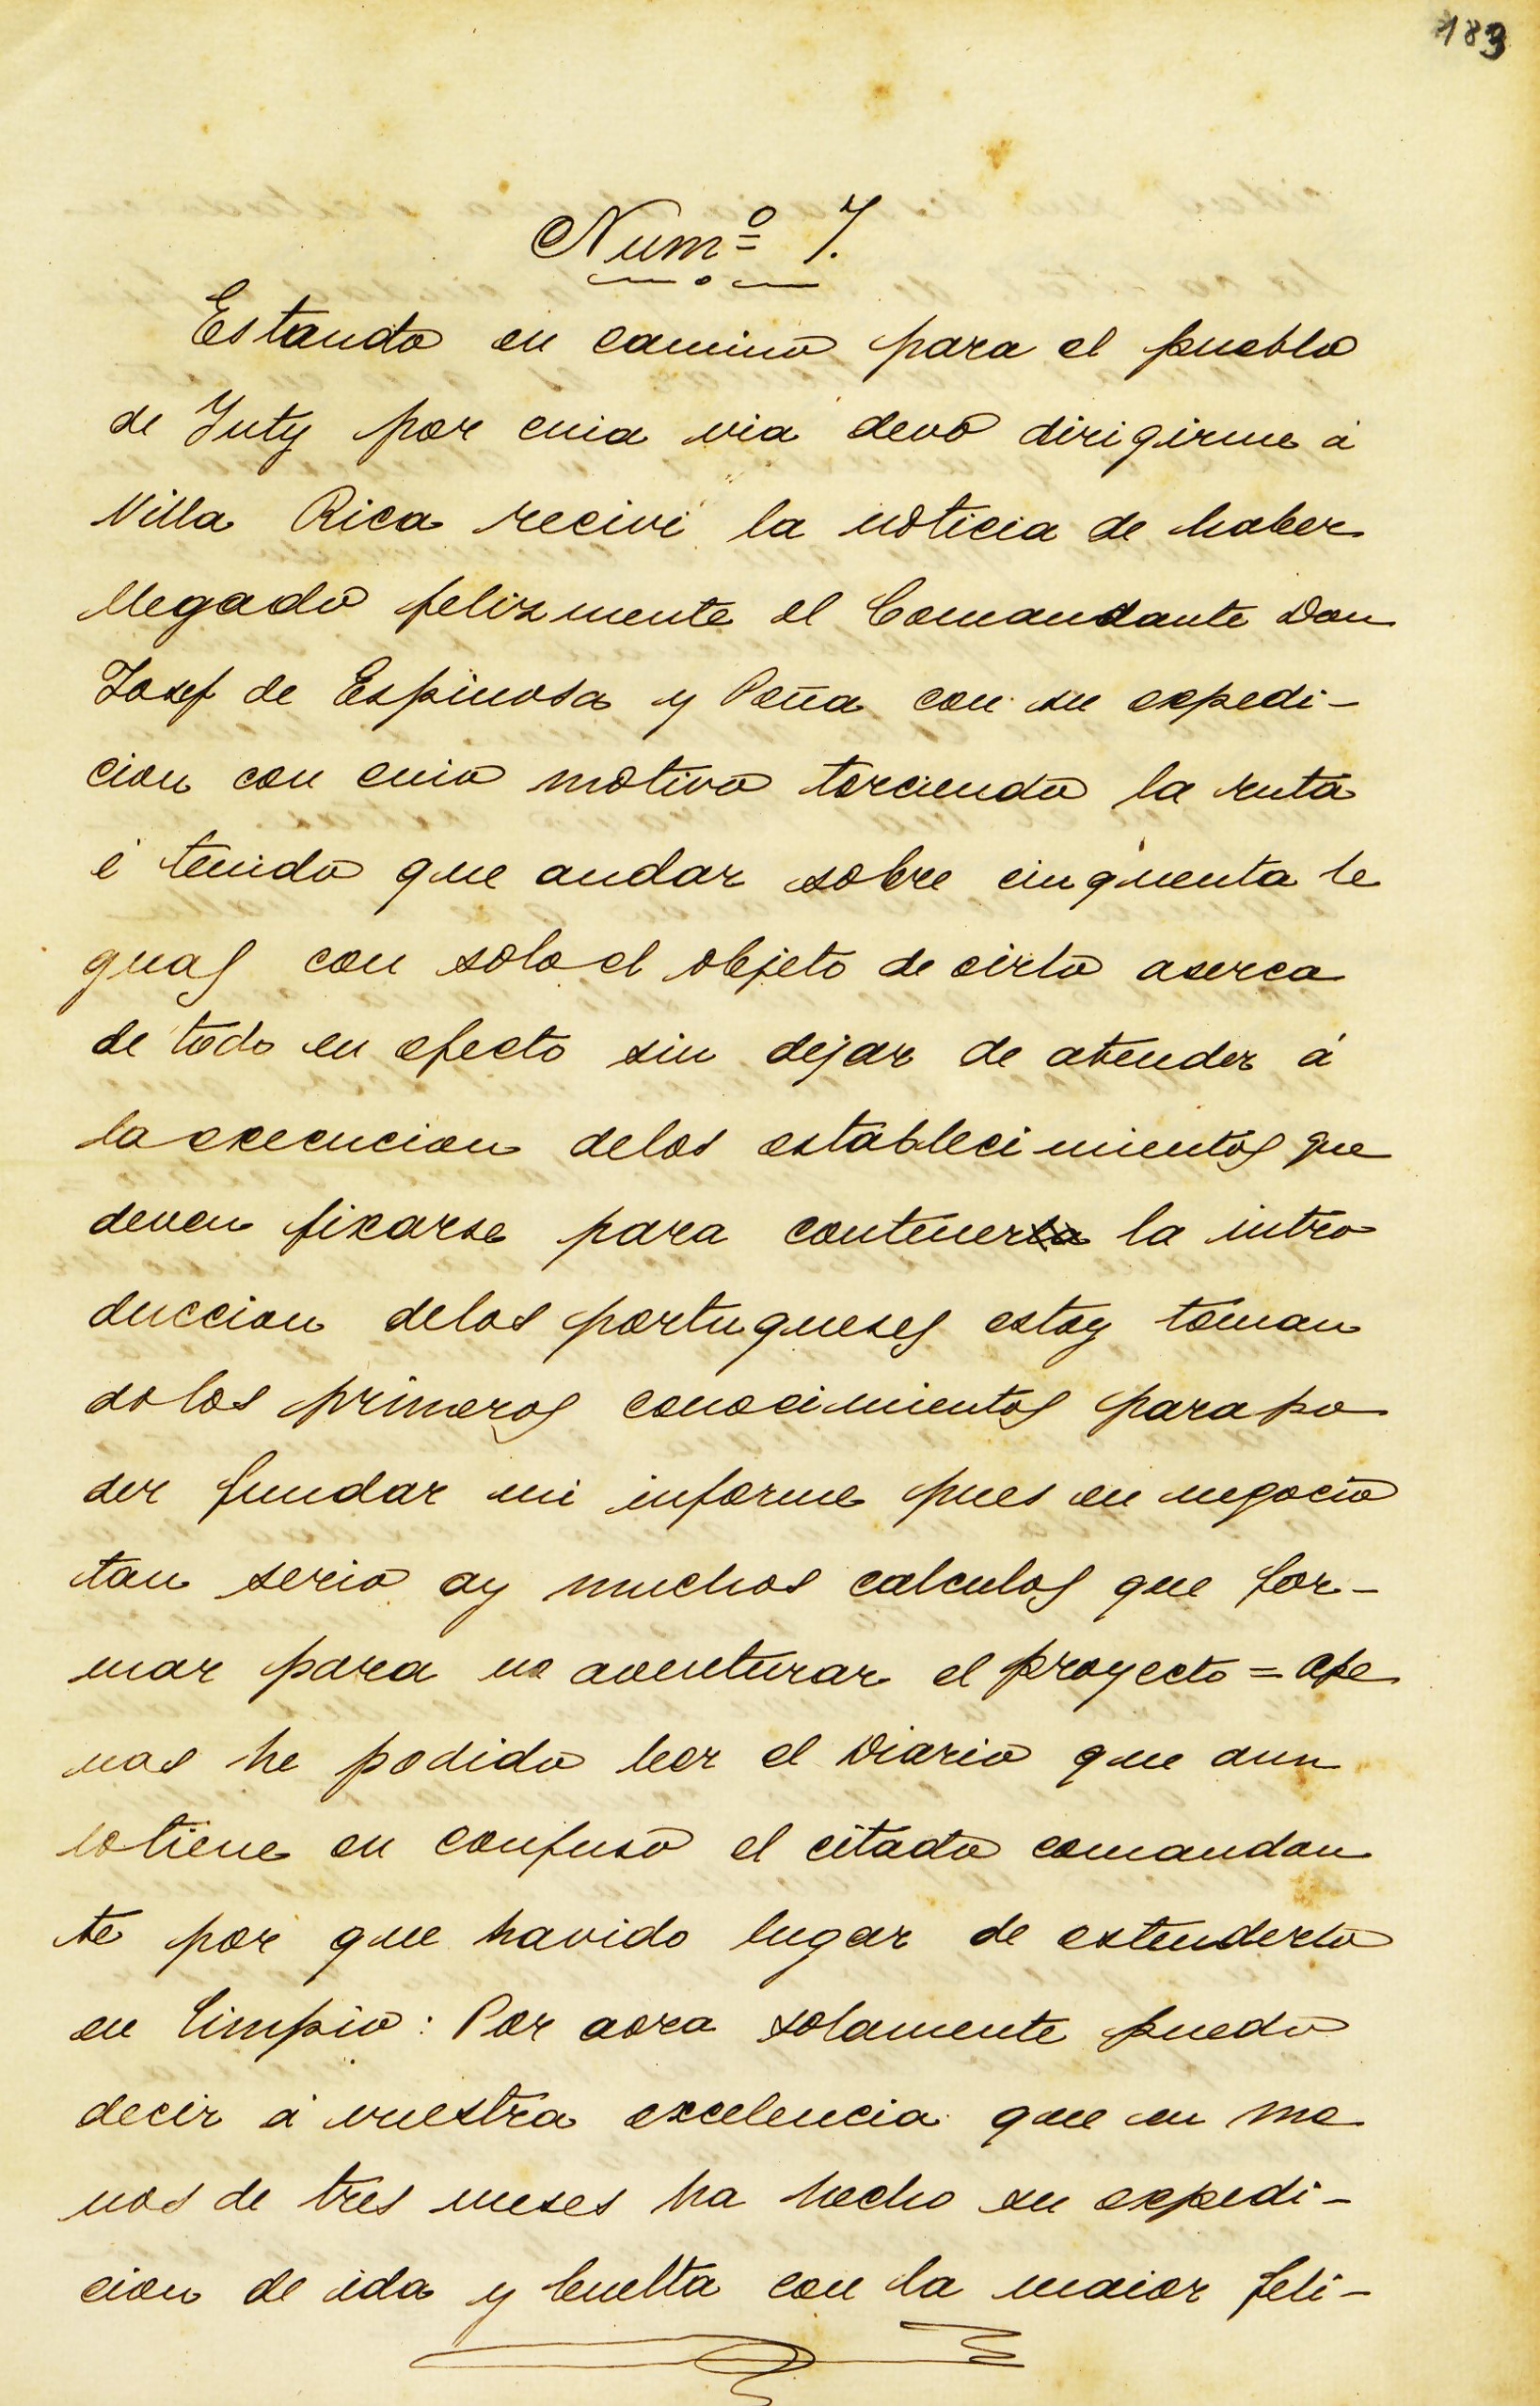 183
Numº 7.
Estando en camino para el pueblo
de Yuty por cuia via devo dirigirme á
Villa Rica recivi la noticia de haber
llegado felizmente el Comandante Don
Josef de Espinosa y Peña con su expedi-
cion con cuio motivo torciendo la ruta
é tenido que andar sobre cinquenta le
guas con solo el objeto de oirlo aserca
de todo en efecto sin dejar de atender á
la execucion delos establecimientos que
deven fixarse para contener la intro
duccion delos portugueses estoy toman
do los primeros conocimientos para po
der fundar mi informe pues en negocio
tan serio ay muchos calculos que for-
mar para no aventurar el proyecto = ape
nas he podido leer el Diario que aun
lo tiene en confuso el citado comandan
te por que havido lugar de extenderlo
en limpio: Por aora solamente puedo
decir á vuestra excelencia que en me
nos de tres meses ha hecho su expedi-
cion de ida y buelta con la maior feli-